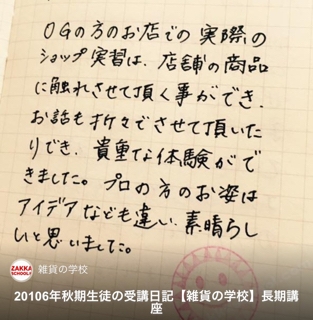 OGの方のお店での実際の
ショップ実習は、店舗の商品
に触れさせて頂く事ができ、
お話も折々でさせて頂いた
りでき、貴重な体験がで
きました。プロの方のお姿は
アイデアなども違い、素晴らし
いと思いました。
ZAKKA
SCHOOL
雑貨の学校
20106年秋期生徒の受講日記【雑貨の学校】長期講
座